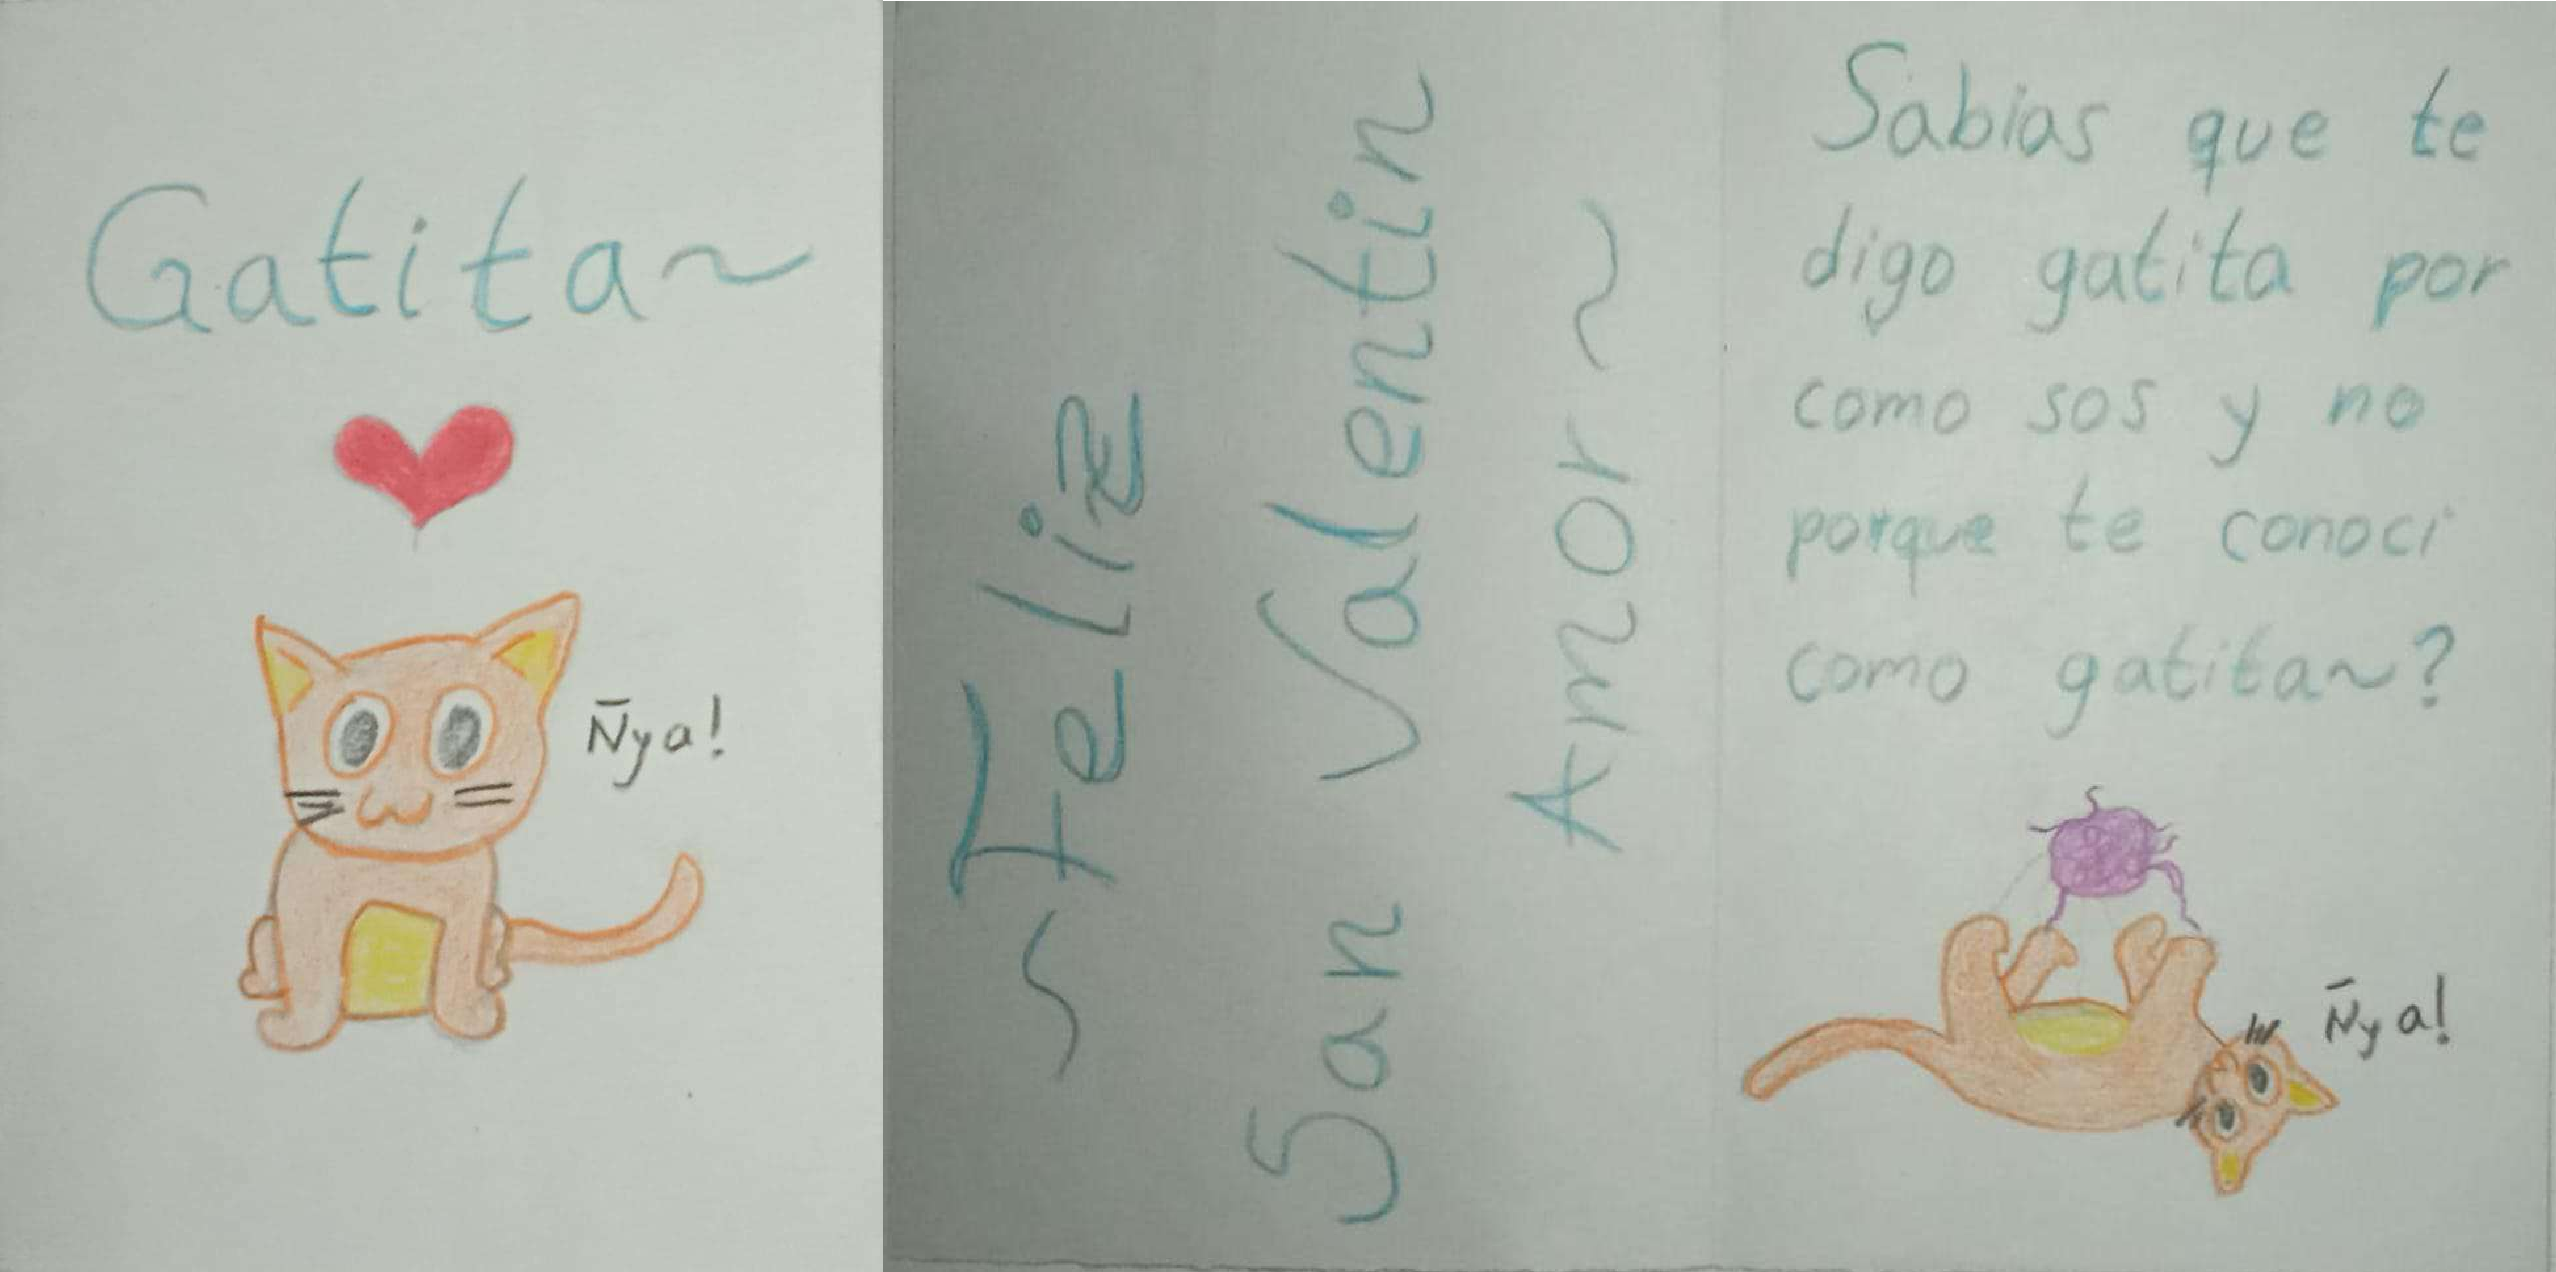 Gatita~
Ñya!
~Feliz
San Valentin
Amor~
Sabias que te
digo gatita por
como sos y no
porque te conoci
como gatita~?
Ñya!